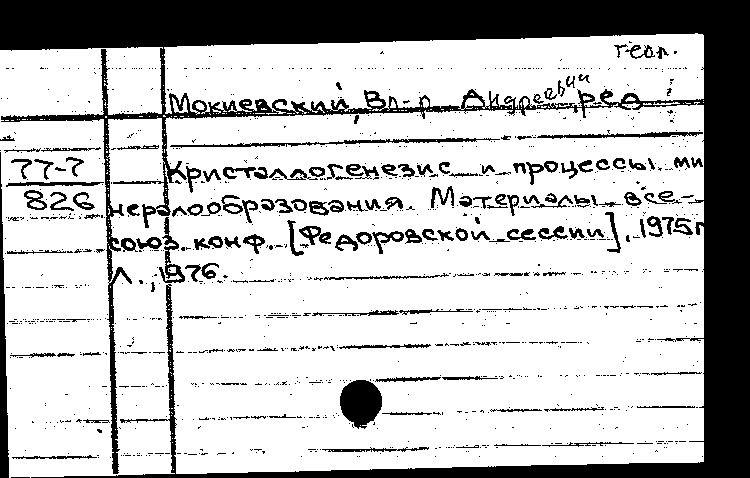 геол.
Мокиевский, Вл-р Андреевич, ред
77-7
826
Кристаллогенезис и процессы ми
нералообразования. Материалы все-
союз. конф. [Федоровской сессии], 1975г
Л., 1976.